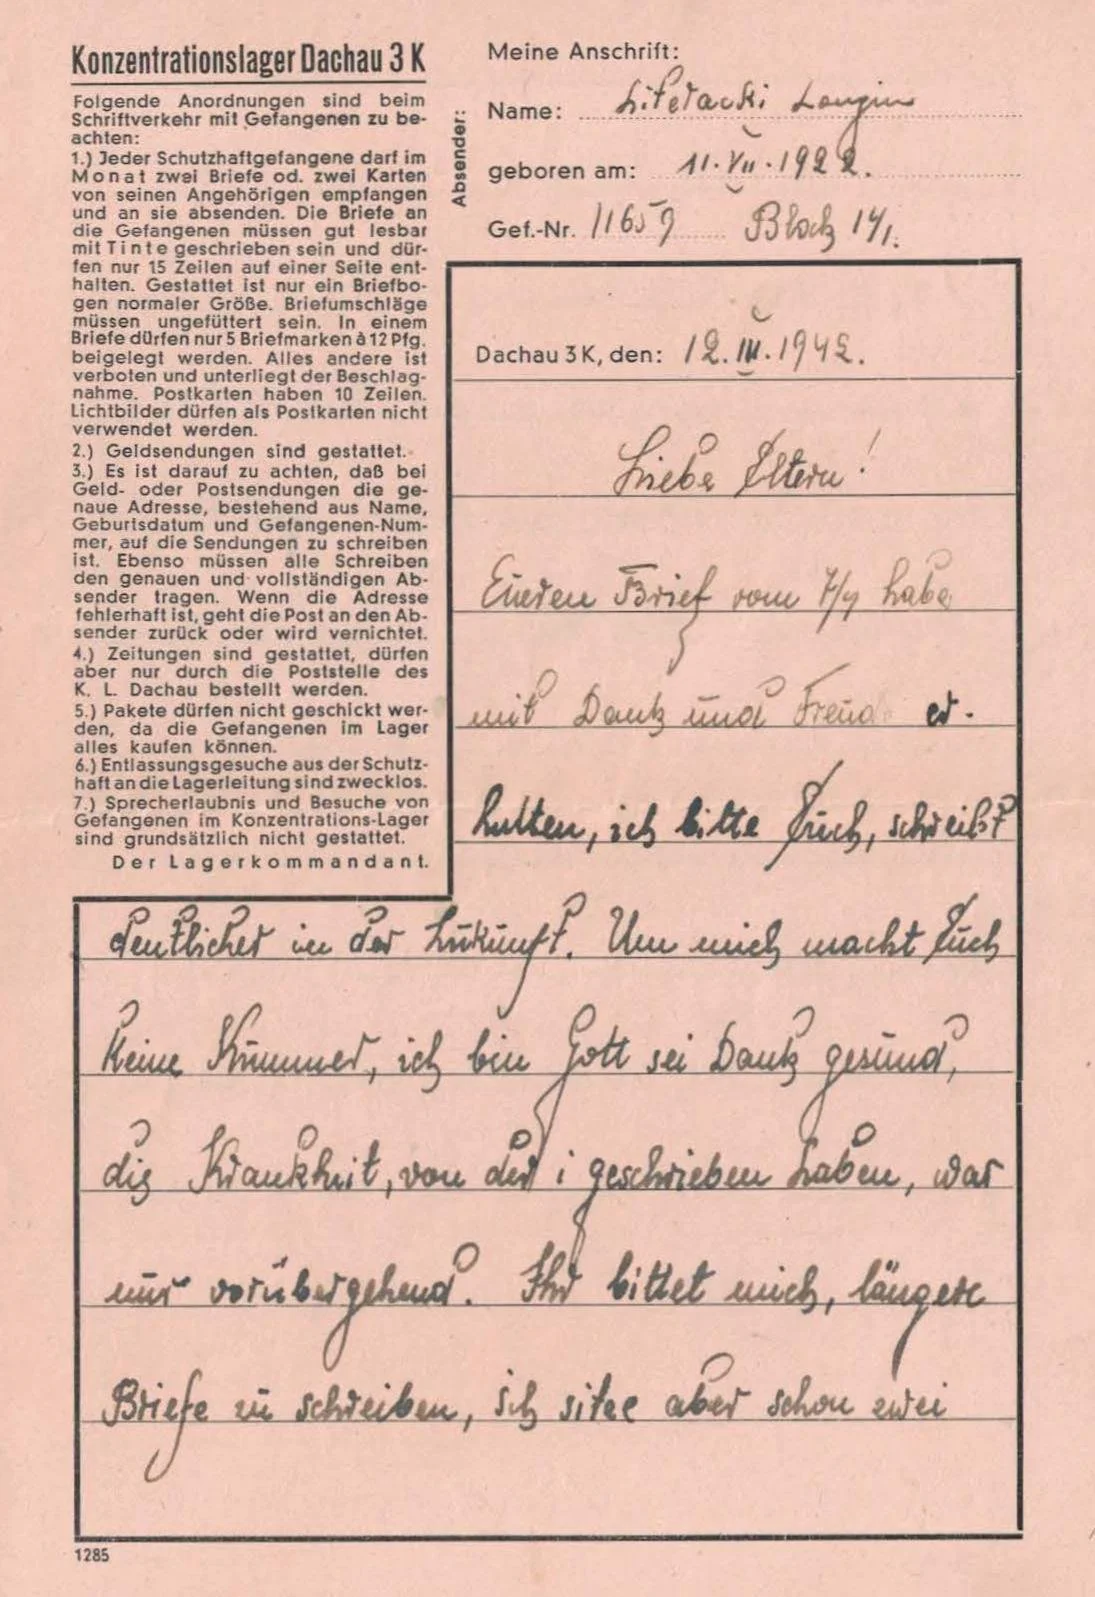 Konzentrationslager Dachau 3 K
Folgende Anordnungen sind beim
Schriftverkehr mit Gefangenen zu be-
achten:
1.) Jeder Schutzhaftgefangene darf im
Monat zwei Briefe od. zwei Karten
von seinen Angehörigen empfangen
und an sie absenden. Die Briefe an
die Gefangenen müssen gut lesbar
mit Tinte geschrieben sein und dür-
fen nur 15 Zeilen auf einer Seite ent-
halten. Gestattet ist nur ein Briefbo-
gen normaler Größe. Briefumschläge
müssen ungefüttert sein. In einem
Briefe dürfen nur 5 Briefmarken à 12 Pfg.
beigelegt werden. Alles andere ist
verboten und unterliegt der Beschlag-
nahme. Postkarten haben 10 Zeilen.
Lichtbilder dürfen als Postkarten nicht
verwendet werden.
2.) Geldsendungen sind gestattet.
3.) Es ist darauf zu achten, daß bei
Geld- oder Postsendungen die ge-
naue Adresse, bestehend aus Name,
Geburtsdatum und Gefangenen-Num-
mer, auf die Sendungen zu schreiben
ist. Ebenso müssen alle Schreiben
den genauen und vollständigen Ab-
sender tragen. Wenn die Adresse
fehlerhaft ist, geht die Post an den Ab-
sender zurück oder wird vernichtet.
4.) Zeitungen sind gestattet, dürfen
aber nur durch die Poststelle des
K. L. Dachau bestellt werden.
5.) Pakete dürfen nicht geschickt wer-
den, da die Gefangenen im Lager
alles kaufen können.
6.) Entlassungsgesuche aus der Schutz-
haft an die Lagerleitung sind zwecklos.
7.) Sprecherlaubnis und Besuche von
Gefangenen im Konzentrations-Lager
sind grundsätzlich nicht gestattet.
Der Lagerkommandant.
Absender:
Meine Anschrift:
Name: Longin
geboren am: 11.VII.1922.
Gef.-Nr. 11659 Block 14/1.
Dachau 3 K, den: 12.III.1942.
Liebe Eltern!
Eueren Brief vom habe
mit Dank und Freude er-
halten, ich bitte Euch, schreibt
deutlicher in der Zukunft. Um mich macht Euch
keine Kummer, ich bin Gott sei Dank gesund,
die Krankheit, von der i geschrieben haben, war
nur vorübergehend. Ihr bittet mich, längere
Briefe zu schreiben, ich sitze aber schon zwei
1285